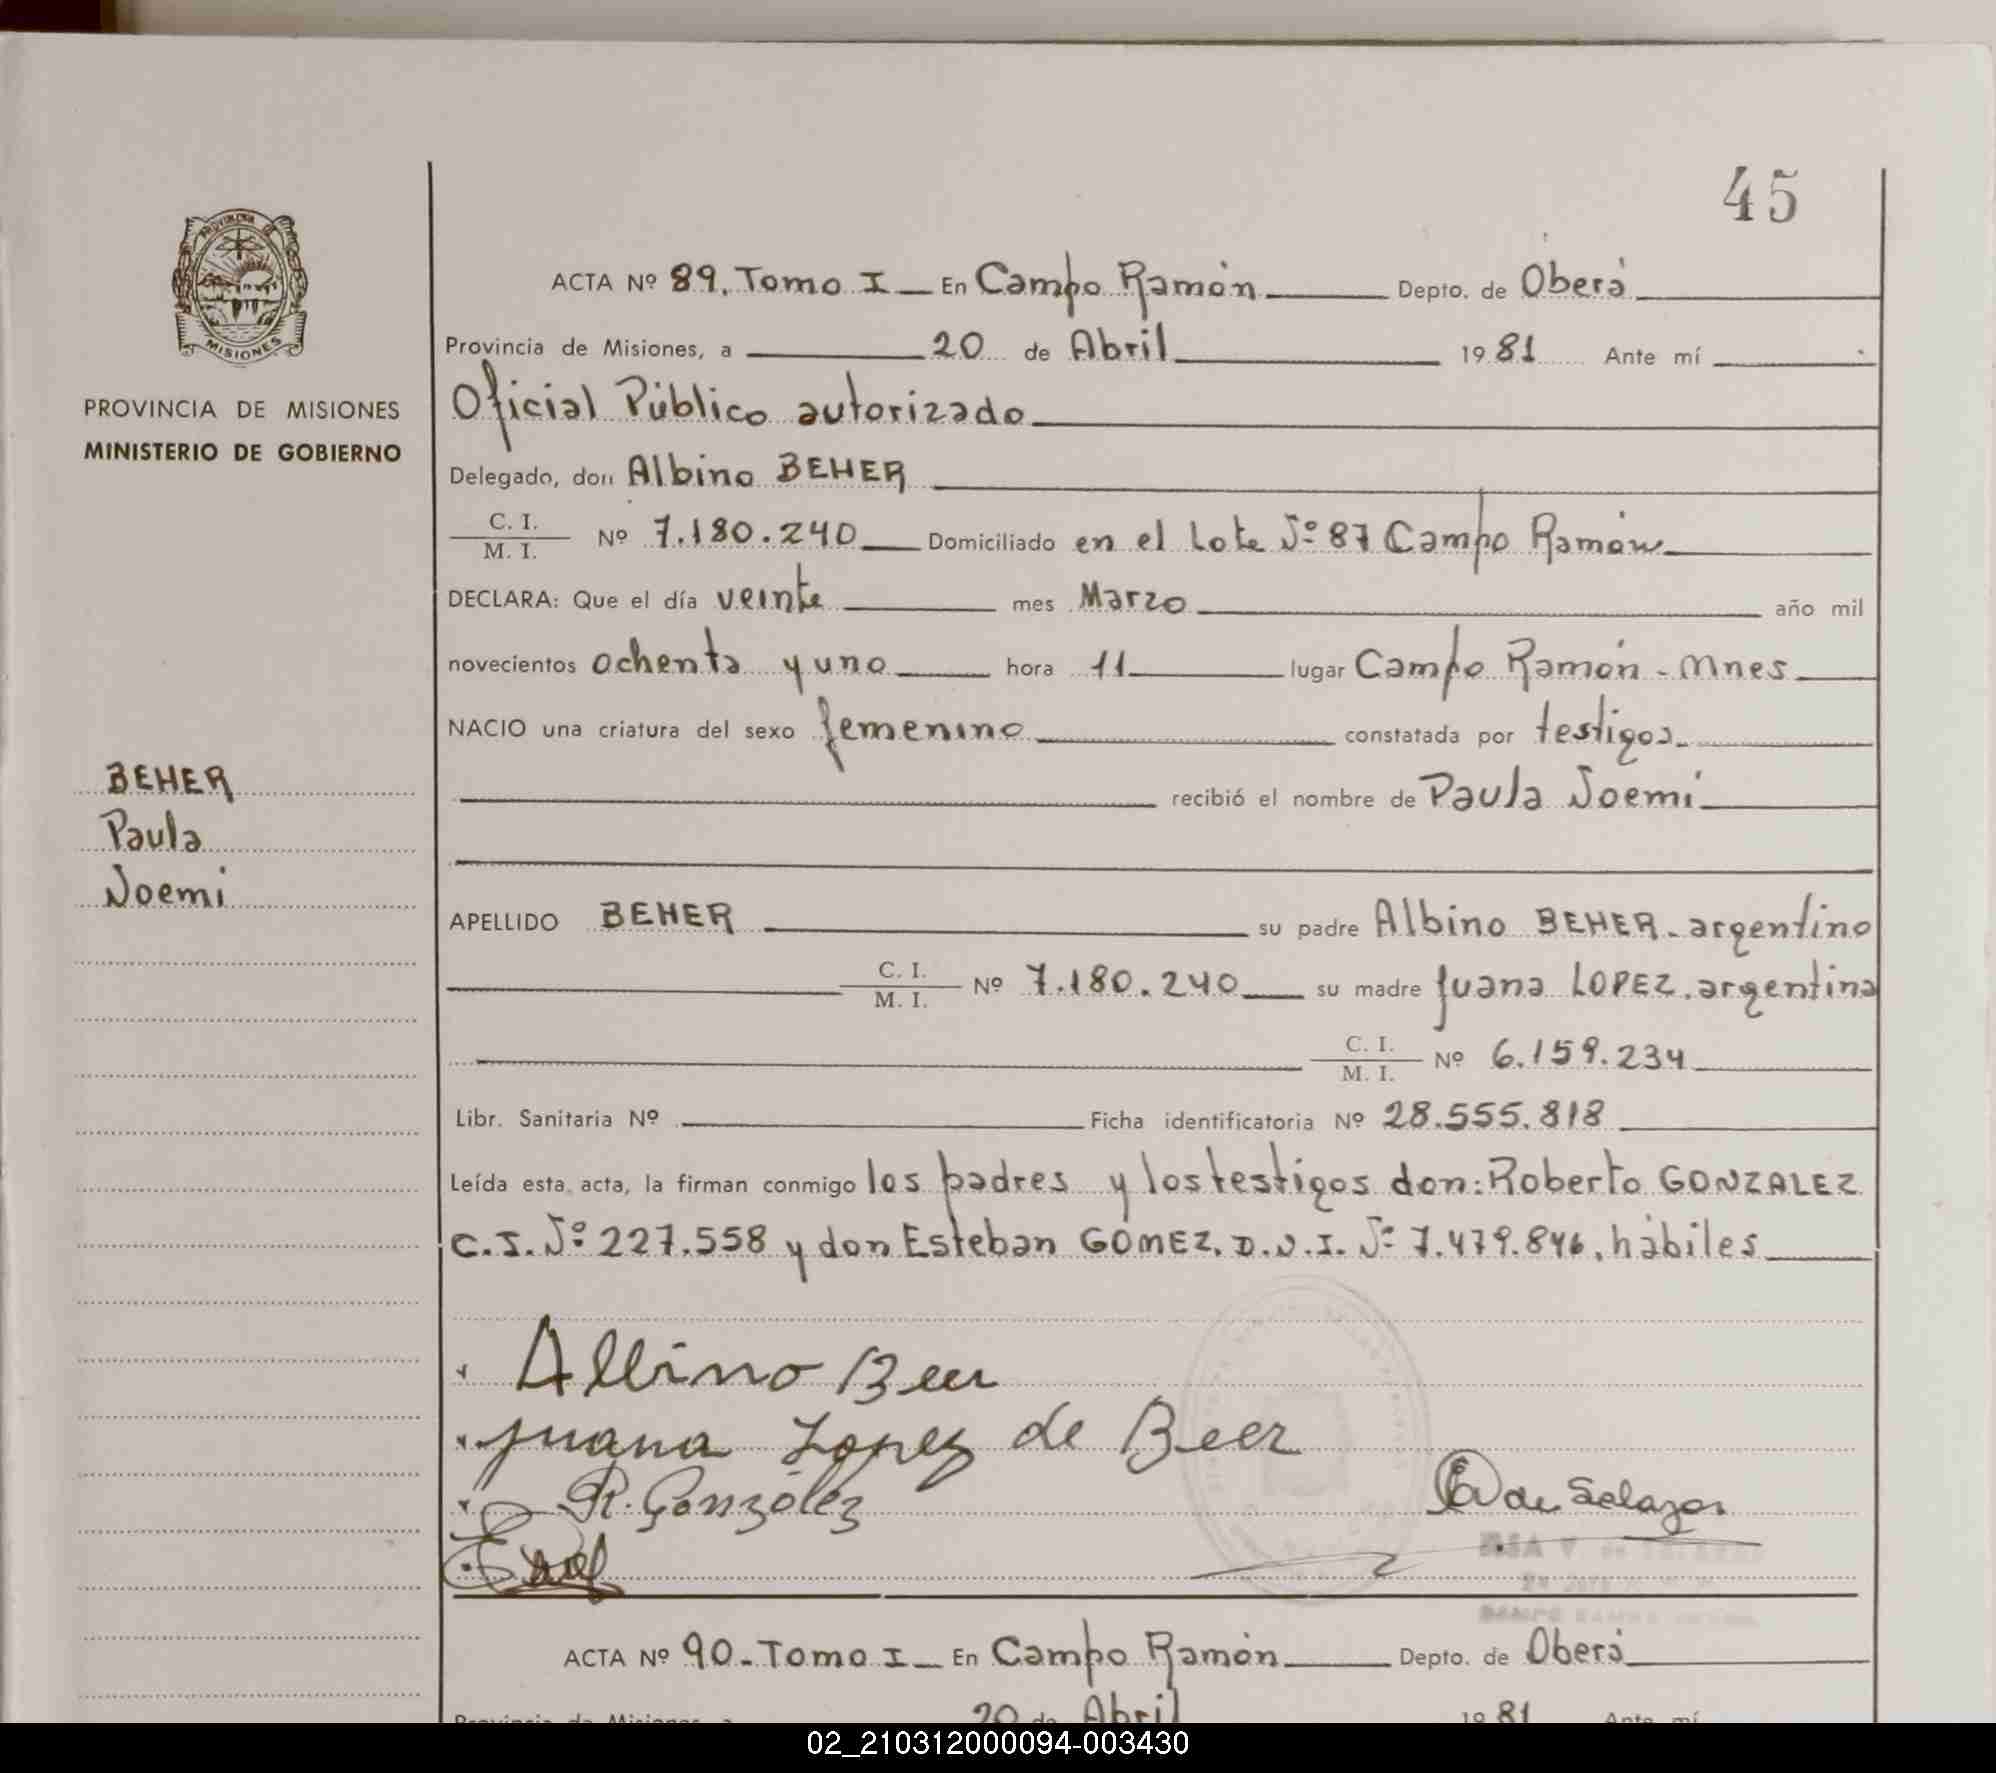 45
PROVINCIA DE
MISIONES
PROVINCIA DE MISIONES
MINISTERIO DE GOBIERNO
BEHER
Paula
Noemi
ACTA Nº 89. Tomo I En Campo Ramón Depto. de Oberá
Provincia de Misiones, a 20 de Abril 1981 Ante mí
Oficial Público autorizado
Delegado, don Albino BEHER
C. I.
M. I. Nº 7.180.240 Domiciliado en el Lote Nº 87 Campo Ramón
DECLARA: Que el día veinte mes Marzo año mil
novecientos ochenta y uno hora 11 lugar Campo Ramón - Mnes
NACIO una criatura del sexo femenino constatada por testigos
recibió el nombre de Paula Noemi
APELLIDO BEHER su padre Albino BEHER - argentino
C. I.
M. I. Nº 7.180.240 su madre Juana LOPEZ. argentina
C. I.
M. I. Nº 6.159.234
Libr. Sanitaria Nº Ficha identificatoria Nº 28.555.818
Leída esta acta, la firman conmigo los padres y los testigos don: Roberto GONZALEZ
C.I. Nº 227.558 y don Esteban GÓMEZ. D.N.I. Nº 7.479.846, hábiles
Albino Beer
Juana Lopez de Beer
R. González
de Salazar
ACTA Nº 90 - Tomo I En Campo Ramón Depto. de Oberá
Provincia de Misiones, a 20 de Abril 1981 Ante mí
02_210312000094-003430